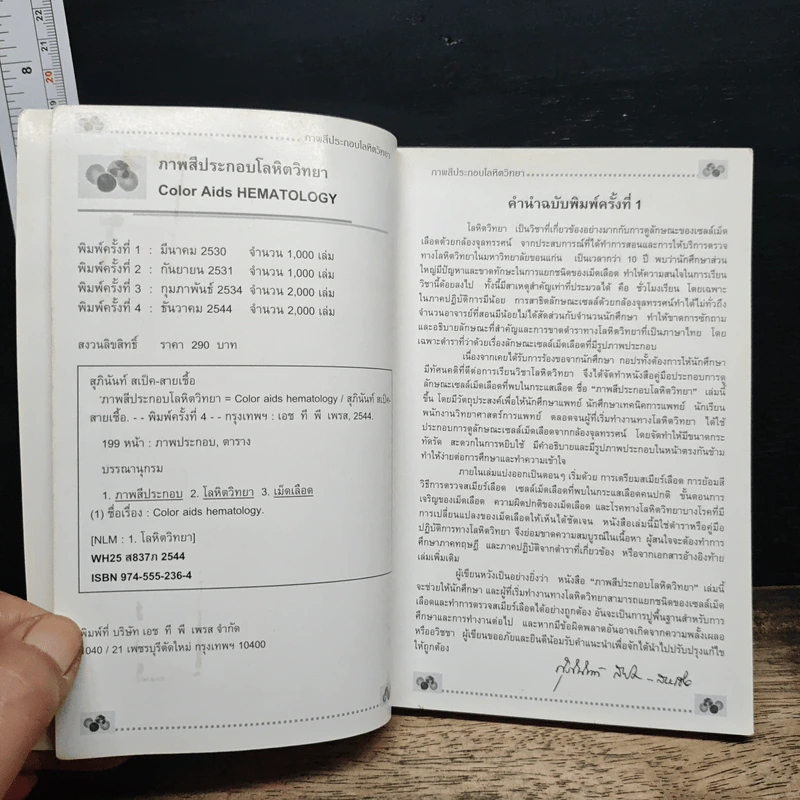 ภาพสีประกอบโลหิตวิทยา
ภาพสีประกอบโลหิตวิทยา
Color Aids HEMATOLOGY
พิมพ์ครั้งที่ 1 : มีนาคม 2530 จำนวน 1,000 เล่ม
พิมพ์ครั้งที่ 2 : กันยายน 2531 จำนวน 1,000 เล่ม
พิมพ์ครั้งที่ 3 : กุมภาพันธ์ 2534 จำนวน 2,000 เล่ม
พิมพ์ครั้งที่ 4 : ธันวาคม 2544 จำนวน 2,000 เล่ม
สงวนลิขสิทธิ์ ราคา 290 บาท
สุภินันท์ สเป็ค-สายเชื้อ
ภาพสีประกอบโลหิตวิทยา = Color aids hematology / สุภินันท์ สเป็ค-
สายเชื้อ. - - พิมพ์ครั้งที่ 4 - - กรุงเทพฯ : เอช ที พี เพรส, 2544.
199 หน้า : ภาพประกอบ, ตาราง
บรรณานุกรม
1. ภาพสีประกอบ 2. โลหิตวิทยา 3. เม็ดเลือด
(1) ชื่อเรื่อง : Color aids hematology.
[NLM : 1. โลหิตวิทยา]
WH25 ส837ภ 2544
ISBN 974-555-236-4
พิมพ์ที่ บริษัท เอช ที พี เพรส จำกัด
1040 / 21 เพชรบุรีตัดใหม่ กรุงเทพฯ 10400
ภาพสีประกอบโลหิตวิทยา
คำนำฉบับพิมพ์ครั้งที่ 1
โลหิตวิทยา เป็นวิชาที่เกี่ยวข้องอย่างมากกับการดูลักษณะของเซลล์เม็ด
เลือดด้วยกล้องจุลทรรศน์ จากประสบการณ์ที่ได้ทำการสอนและการให้บริการตรวจ
ทางโลหิตวิทยาในมหาวิทยาลัยขอนแก่น เป็นเวลากว่า 10 ปี พบว่านักศึกษาส่วน
ใหญ่มีปัญหาและขาดทักษะในการแยกชนิดของเม็ดเลือด ทำให้ความสนใจในการเรียน
วิชานี้ด้อยลงไป ทั้งนี้มีสาเหตุสำคัญเท่าที่ประมวลได้ คือ ชั่วโมงเรียน โดยเฉพาะ
ในภาคปฏิบัติการมีน้อย การสาธิตลักษณะเซลล์ด้วยกล้องจุลทรรศน์ทำได้ไม่ทั่วถึง
จำนวนอาจารย์ที่สอนมีน้อยไม่ได้สัดส่วนกับจำนวนนักศึกษา ทำให้ขาดการซักถาม
และอธิบายลักษณะที่สำคัญและการขาดตำราทางโลหิตวิทยาที่เป็นภาษาไทย โดย
เฉพาะตำราที่ว่าด้วยเรื่องลักษณะเซลล์เม็ดเลือดที่มีรูปภาพประกอบ
เนื่องจากเคยได้รับการร้องขอจากนักศึกษา กอปรทั้งต้องการให้นักศึกษา
มีทัศนคติที่ดีต่อการเรียนวิชาโลหิตวิทยา จึงได้จัดทำหนังสือคู่มือประกอบการดู
ลักษณะเซลล์เม็ดเลือดที่พบในกระแสเลือด ชื่อ "ภาพสีประกอบโลหิตวิทยา" เล่มนี้
ขึ้น โดยมีวัตถุประสงค์เพื่อให้นักศึกษาแพทย์ นักศึกษาเทคนิคการแพทย์ นักเรียน
พนักงานวิทยาศาสตร์การแพทย์ ตลอดจนผู้ที่เริ่มทำงานทางโลหิตวิทยา ได้ใช้
ประกอบการดูลักษณะเซลล์เม็ดเลือดจากกล้องจุลทรรศน์ โดยจัดทำให้มีขนาดกระ
ทัดรัด สะดวกในการหยิบใช้ มีคำอธิบายและมีรูปภาพประกอบในหน้าตรงกันข้าม
ทำให้ง่ายต่อการศึกษาและทำความเข้าใจ
ภายในเล่มแบ่งออกเป็นตอนๆ เริ่มด้วย การเตรียมสเมียร์เลือด การย้อมสี
วิธีการตรวจสเมียร์เลือด เซลล์เม็ดเลือดที่พบในกระแสเลือดคนปกติ ขั้นตอนการ
เจริญของเม็ดเลือด ความผิดปกติของเม็ดเลือด และโรคทางโลหิตวิทยาบางโรคที่มี
การเปลี่ยนแปลงของเม็ดเลือดให้เห็นได้ชัดเจน หนังสือเล่มนี้มิใช่ตำราหรือคู่มือ
ปฏิบัติการทางโลหิตวิทยา จึงย่อมขาดความสมบูรณ์ในเนื้อหา ผู้สนใจจะต้องทำการ
ศึกษาภาคทฤษฎี และภาคปฏิบัติจากตำราที่เกี่ยวข้อง หรือจากเอกสารอ้างอิงท้าย
เล่มเพิ่มเติม
ผู้เขียนหวังเป็นอย่างยิ่งว่า หนังสือ "ภาพสีประกอบโลหิตวิทยา" เล่มนี้
จะช่วยให้นักศึกษา และผู้ที่เริ่มทำงานทางโลหิตวิทยาสามารถแยกชนิดของเซลล์เม็ด
เลือดและทำการตรวจสเมียร์เลือดได้อย่างถูกต้อง อันจะเป็นการปูพื้นฐานสำหรับการ
ศึกษาและการทำงานต่อไป และหากมีข้อผิดพลาดอันอาจเกิดจากความพลั้งเผลอ
หรืออวิชชา ผู้เขียนขออภัยและยินดีน้อมรับคำแนะนำเพื่อจักได้นำไปปรับปรุงแก้ไข
ให้ถูกต้อง
8
22
21
20
19